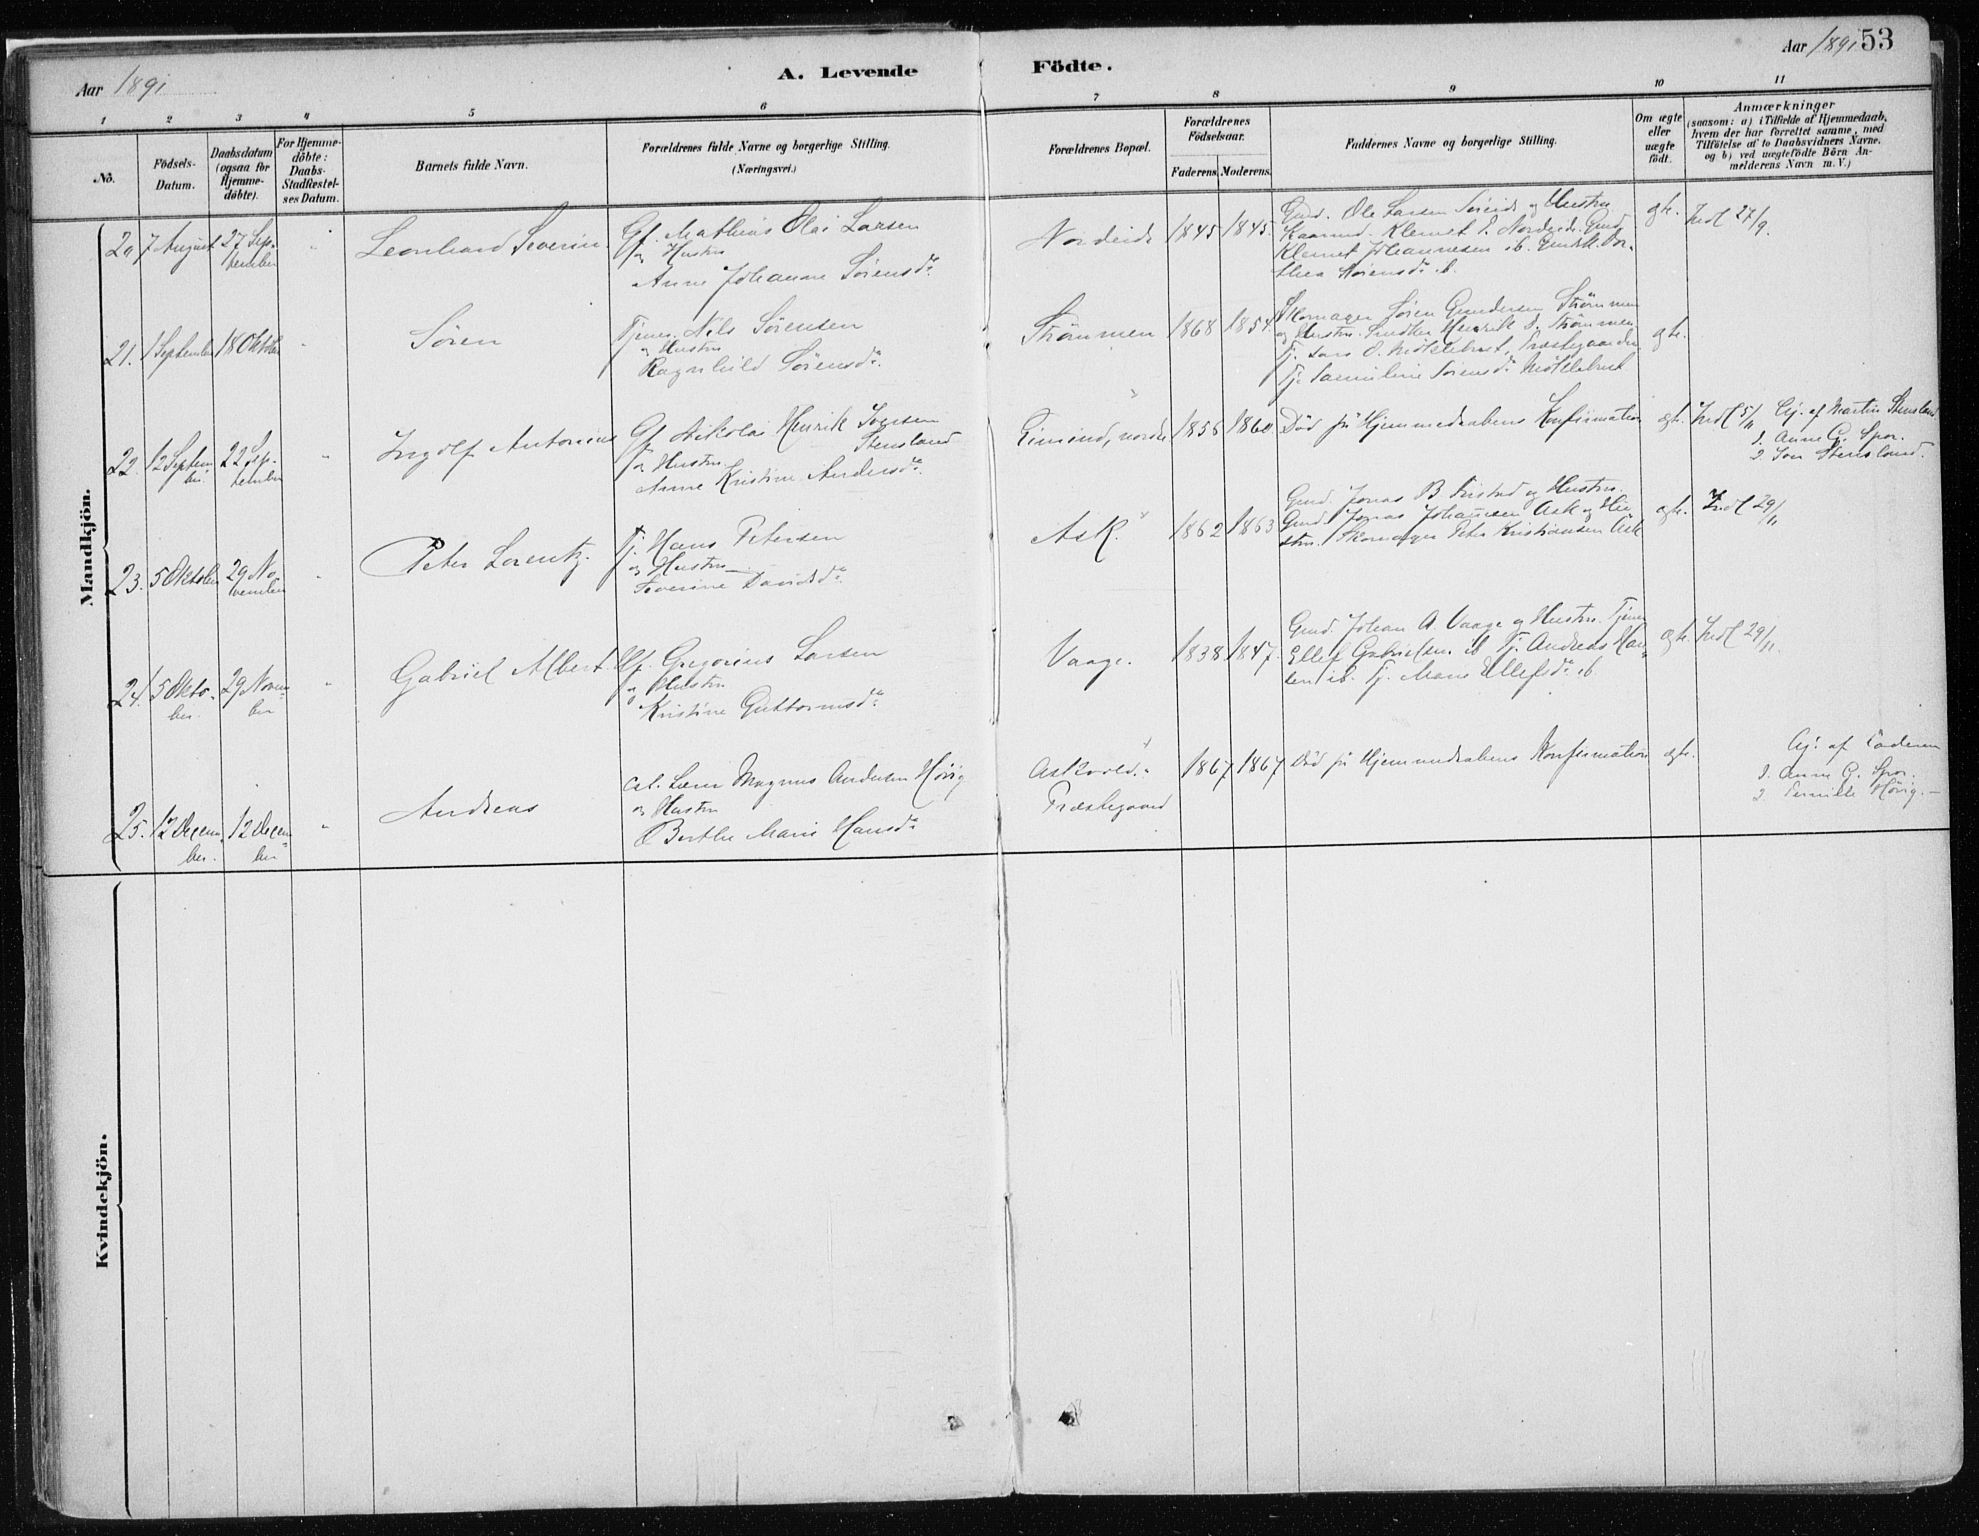 Aar 1891
A. Levende Födte.
Aar 1891 53
1 2 3 4 5 6 7 8 9 10 11
No.
Födsels-Datum.
Daabsdatum (ogsaa for Hjemme-döbte).
For Hjemme-döbte: Daabs-Stadfæstel-ses Datum.
Barnets fulde Navn.
Forældrenes fulde Navne og borgerlige Stilling. (Næringsvei.)
Forældrenes Bopæl.
Forældrenes Födselsaar.
Faderens. Moderens.
Faddernes Navne og borgerlige Stilling.
Om ægte eller uægte födt.
Anmærkninger
(saasom: a) i Tilfælde af Hjemmedaab, hvem der har forrettet samme, med Tilföielse af to Daabsvidners Navne, og b) ved uægtefödte Börn An-melderens Navn m. V.)
Mandkjön.
20 7 August 27 Sep-tember " Leonhard Severin
Gf. Mathias Olai Larsen
og Hustru
Anne Johanne Sörensdr.
Nordeide 1845 1845
Gmd. Ole Larsen og Hustru
Klemet P. Nordeide. Gmd.
Klemet Johannesen ib.
Sörensdr. ib.
gte. Indl 27/9.
21. 1 September 18 Oktober " Sören
Tjener Nils Sörensen
og Hustru
Ragnhild Sörensdr.
Strömmen 1868 1854.
Skomager Sören Gundersen Strömmen
og Hustru. Henrik S. Strömmen.
Tj. Lars O.
Tj. Sörensdr.
gte.
22. 12 Septem-ber. 22 Sep-tember " Ingolf Antonius
Gf. Nikolai Henrik Stensland
og Hustru
Anne Kristine Andersdr.
nordre 1856 1860
Död för Hjemmedaabens Konfirmation
gte. Indl 5/11 Hj. af Martin Stensland
1. Anne G. Spor.
2. Stensland.
23. 5 Oktober 29 No-vember " Peter Lorentz.
Tj. Hans Petersen
og Hustru
Severine Davidsdr.
Ask. 1862 1863
Gmd. Jonas B. og Hustru.
Gmd. Jonas Johannesen Ask og Hu-
stru. Skomager Peter Kristiansen Ask
gte. Indl 29/11
24. 15 Okto-ber. 29 Novem-ber " Gabriel Albert.
Gf. Gregorius Larsen
og Hustru
Kristine Guttormsdr.
Vaage. 1838 1847.
Gmd. Johan A. Vaage og Hustru. Tjener
Ellef Gabrielsen ib. Tj. Andreas Han-
sen ib. Tj. Marie Ellefsdr. ib.
gte. Indl 29/11.
25. 12 Decem-ber. 12 Decem-ber " Andreas
Magnus Andersen Hövig
og Hustru
Berthe Marie Hansdr.
Askvold.
Præstegaard
1867 1867
Död för Hjemmedaabens Konfirmation gte.
Hj. af Faderen
1. Anne G. Spor.
2. Pernille Hövig.
Kvindekjön.